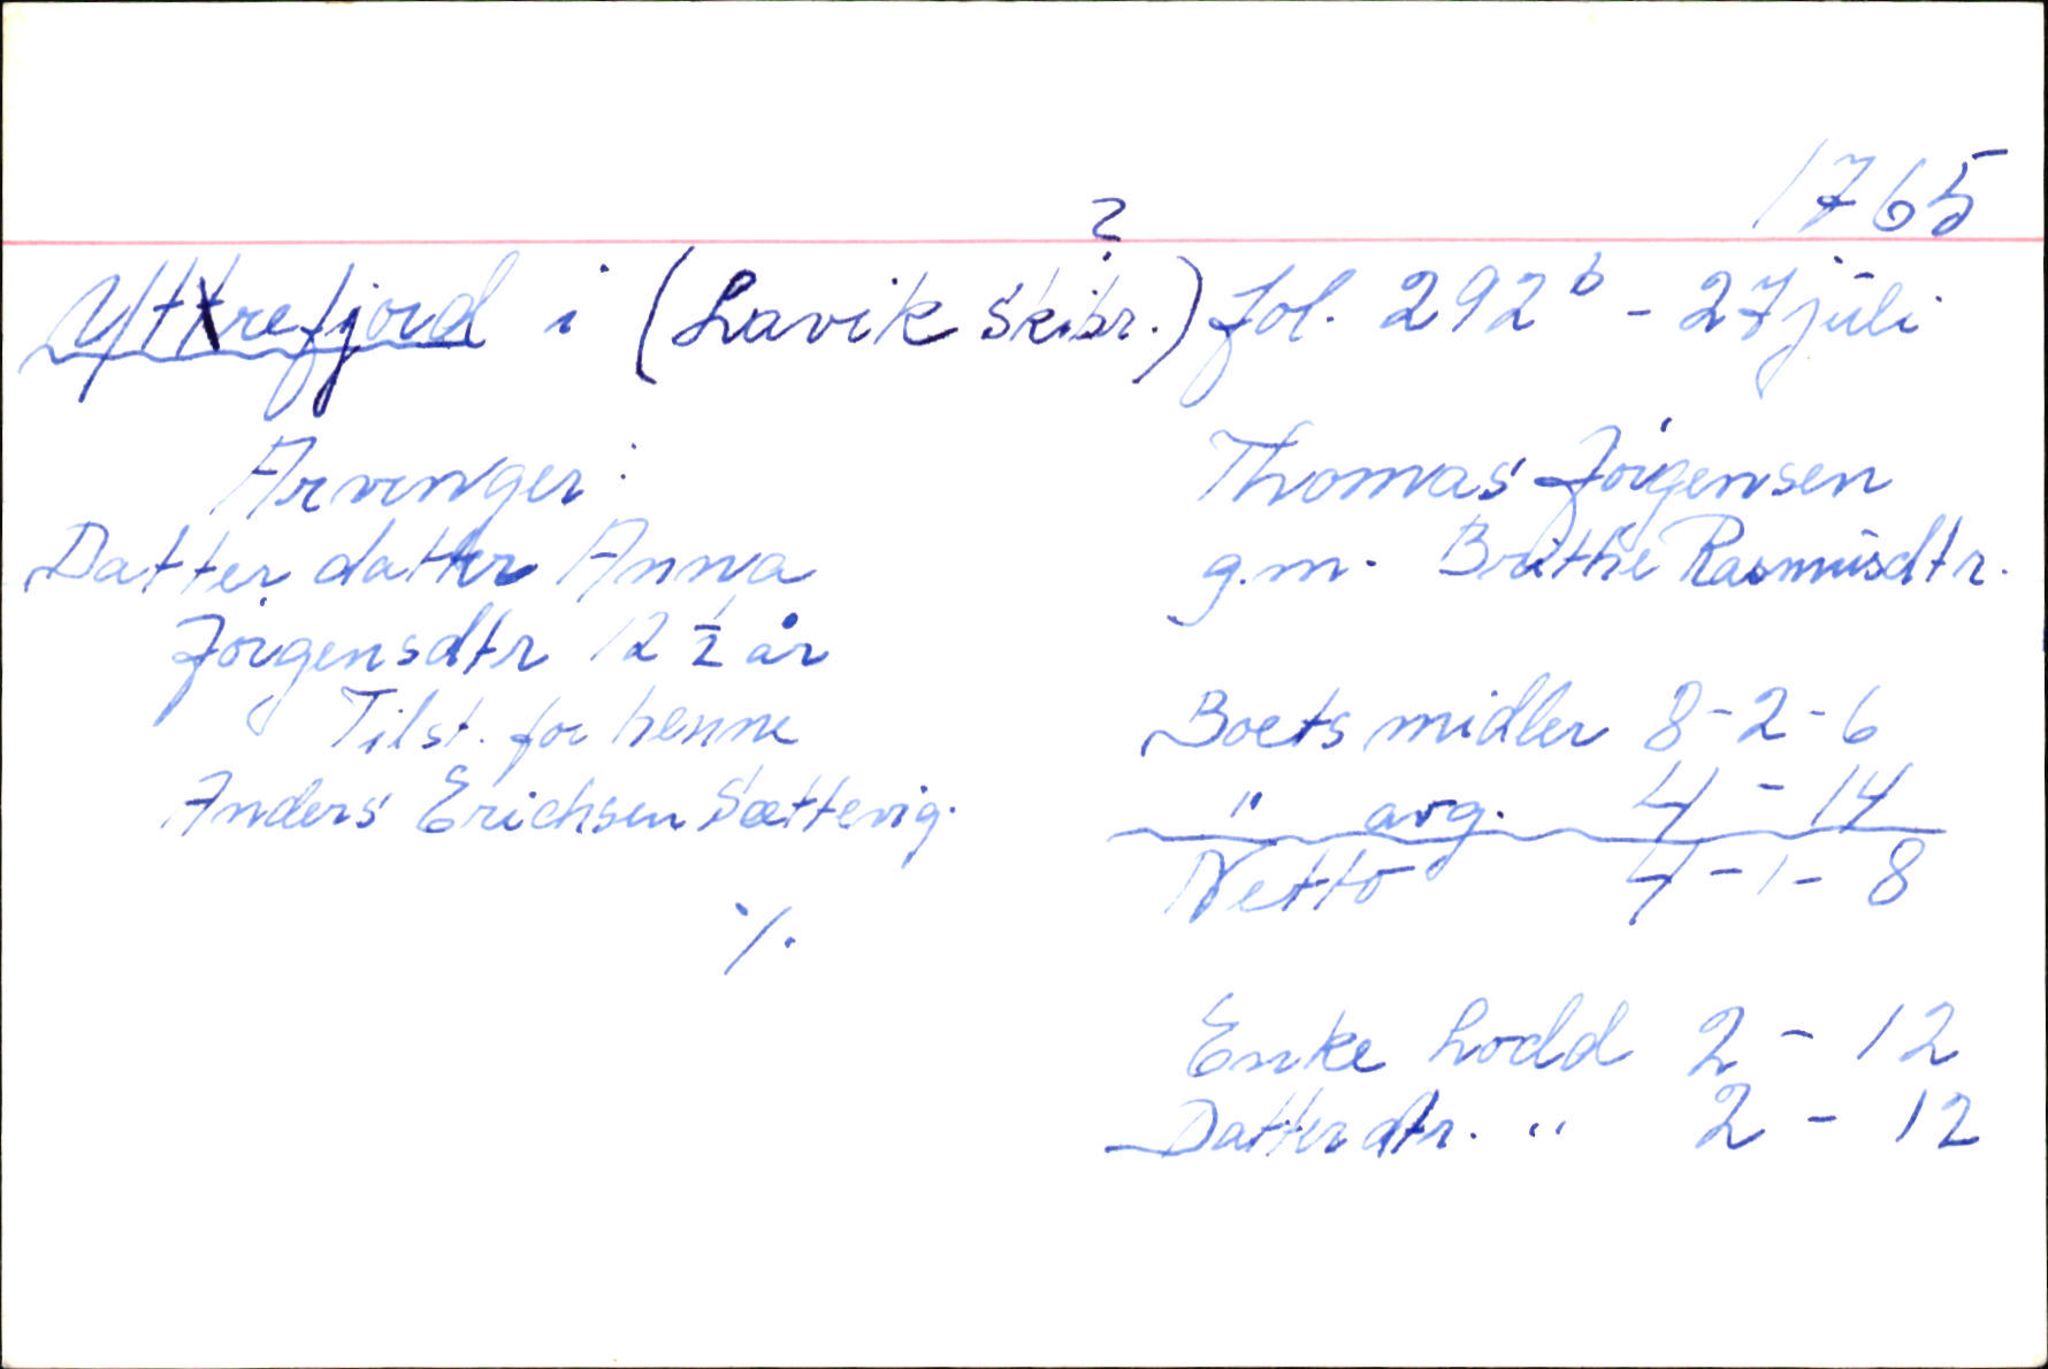 1765
?
Yttrefjord i (Lavik Skibr.) fol. 292b - 27 juli
Arvinger:
Datter datter Anna
Jörgensdtr 12 1/2 år
Tilst. for henne
Anders Erichsen Sættevig.
./.
Thomas Jörgensen
g.m. Brithe Rasmusdtr.
Boets midler 8-2-6
" avg. 4 - 14
Netto 4-1-8
Enke lodd 2 - 12
Datter dtr. " 2 - 12